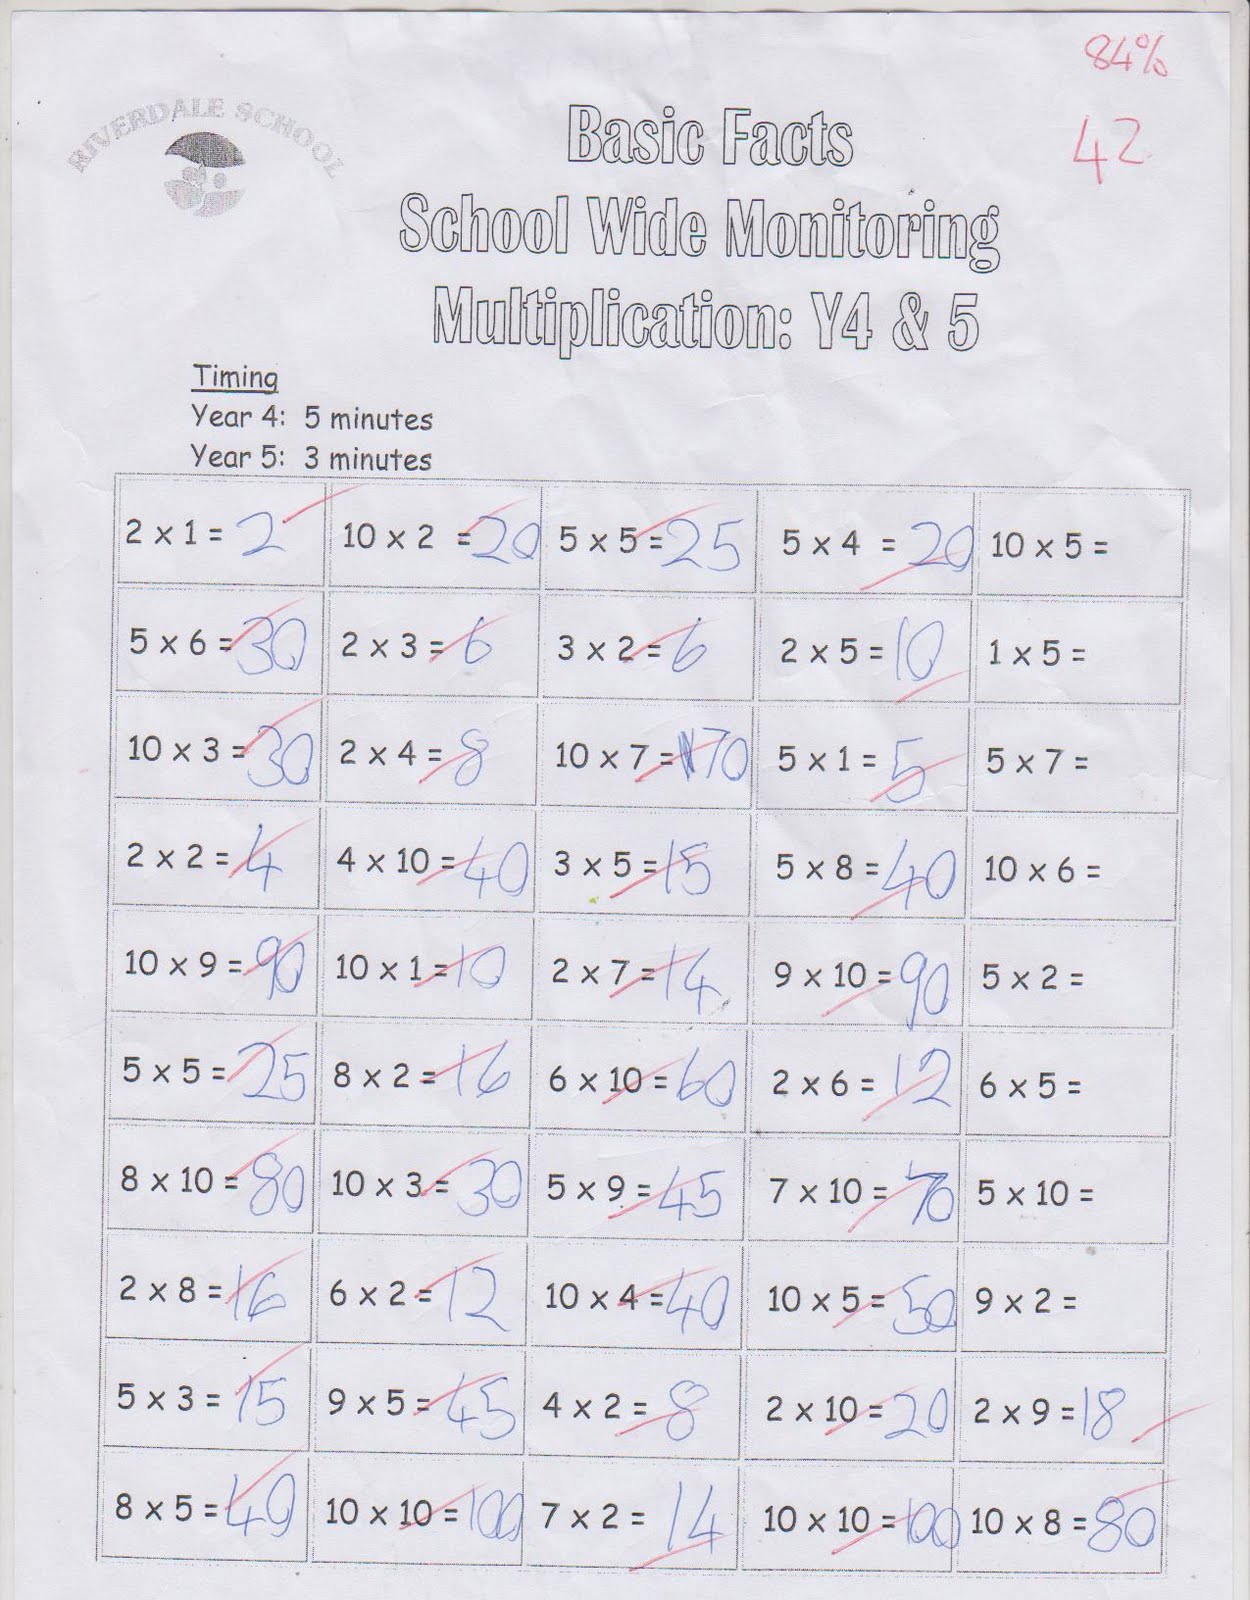 84%
RIVERDALE SCHOOL
Basic Facts
42
School Wide Monitoring
Multiplication: Y4 & 5
Timing
Year 4: 5 minutes
Year 5: 3 minutes
2 x 1 = 2 10 x 2 = 20 5 x 5 = 25 5 x 4 = 20 10 x 5 =
5 x 6 = 30 2 x 3 = 6 3 x 2 = 6 2 x 5 = 10 1 x 5 =
10 x 3 = 30 2 x 4 = 8 10 x 7 = 70 5 x 1 = 5 5 x 7 =
2 x 2 = 4 4 x 10 = 40 3 x 5 = 15 5 x 8 = 40 10 x 6 =
10 x 9 = 90 10 x 1 = 10 2 x 7 = 14 9 x 10 = 90 5 x 2 =
5 x 5 = 25 8 x 2 = 16 6 x 10 = 60 2 x 6 = 12 6 x 5 =
8 x 10 = 80 10 x 3 = 30 5 x 9 = 45 7 x 10 = 70 5 x 10 =
2 x 8 = 16 6 x 2 = 12 10 x 4 = 40 10 x 5 = 50 9 x 2 =
5 x 3 = 15 9 x 5 = 45 4 x 2 = 8 2 x 10 = 20 2 x 9 = 18
8 x 5 = 40 10 x 10 = 100 7 x 2 = 14 10 x 10 = 100 10 x 8 = 80